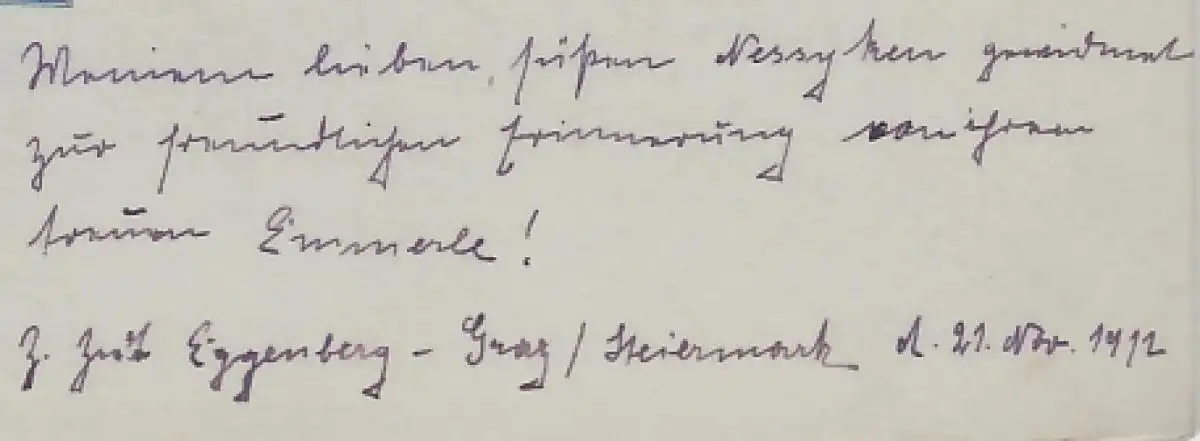 Meinem lieben, süßen Nessyken gewidmet
zur freundlichen Erinnerung von ihrem
treuen Emmerle!
Z. Zeit Eggenberg - Graz / Steiermark d. 21. Nov. 1912